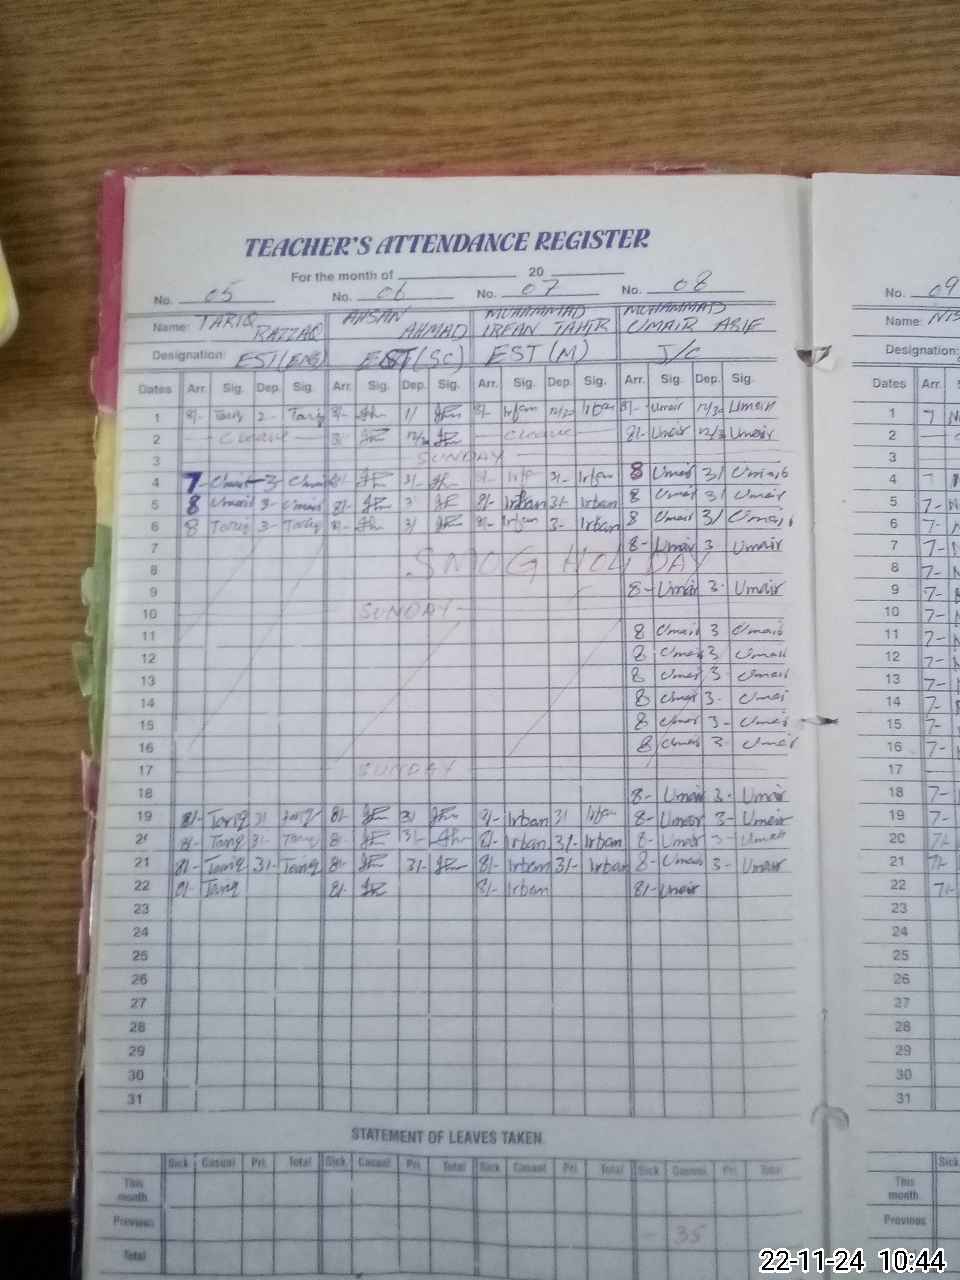 TEACHER'S ATTENDANCE REGISTER
For the month of 20
No. 05 No. 06 No. 07 No. 08 No. 09
Name: TARIQ RAZZAQ AHSAN AHMAD MUHAMMAD IRFAN TAHIR MUHAMMAD UMAIR ASIF Name:
Designation: EST(ENG) EST(SC) EST(M) J/C Designation:
Dates Arr. Sig. Dep. Sig. Arr. Sig. Dep. Sig. Arr. Sig. Dep. Sig. Arr. Sig. Dep. Sig. Dates Arr.
1 8/- Tariq 2- Tariq 8/- 1/ 8/- Irfan 12/30 Irfan 8/- Umair 12/30 Umair 1 7
2 8 12/30 8/- Umair 12/30 Umair 2
3 SUNDAY 3
4 7- 3- 3/- Irfan 3/- Irfan 8 Umair 3/ Umair 4 7
5 8 Umair 3- Umair 8/- 3 8/- Irfan 3/- Irfan 8 Umair 3/ Umair 5 7-
6 8 Tariq 3- Tariq 8/- 3/ 8/- Irfan 3- Irfan 8 Umair 3/ Umair 6 7-
7 8- Umair 3 Umair 7 7-
8 SMOG HOLIDAY 8 7-
9 8- Umair 3- Umair 9 7-
10 SUNDAY 10 7-
11 8 Umair 3 Umair 11 7-
12 8 Umair 3 Umair 12 7-
13 8 Umair 3- Umair 13 7-
14 8 Umair 3- Umair 14 7-
15 8 Umair 3- Umair 15 7-
16 8 Umair 3- Umair 16 7-
17 SUNDAY 17
18 8- Umair 3- Umair 18 7-
19 8/- Tariq 3/ Tariq 8/- 3/ 8/- Irfan 3/ Irfan 8- Umair 3- Umair 19 7-
20 8/- Tariq 3/- Tariq 8- 3/- 8/- Irfan 3/- Irfan 8- Umair 3- Umair 20 7/-
21 8/- Tariq 3/- Tariq 8/- 3/- 8/- Irfan 3/- Irfan 8- Umair 3- Umair 21 7/-
22 8/- Tariq 8/- 8/- Irfan 8/- Umair 22 7/-
23 23
24 24
25 25
26 26
27 27
28 28
29 29
30 30
31 31
STATEMENT OF LEAVES TAKEN
Sick Casual Pri. Total Sick Casual Pri. Total Sick Casual Pri. Total Sick Casual Pri. Total Sick
This month This month
Previous 35 Previous
Total Total
22-11-24 10:44